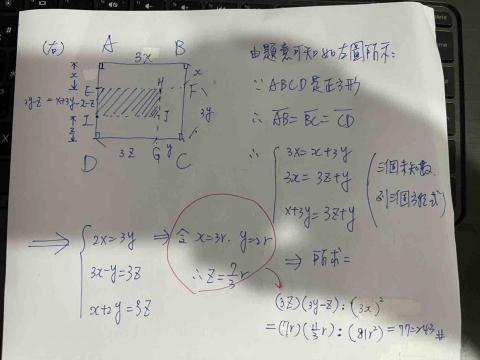 (右)
A B
3x
x x
E H F
3y-z = x+3y-z-z
I J 3y
z
D 3z G y C
由題意可知如左圖所示:
∵ ABCD是正方形
∴ AB = BC = CD
∴ { 3x = x+3y
3x = 3z+y
x+3y = 3z+y
(三個未知數,
列三個方程式)
⟹ { 2x = 3y
3x-y = 3z
x+2y = 3z
⟹ 令 x=3r, y=2r
∴ z = 7/3 r
⟹ 所求=
(3z)(3y-z) : (3x)²
= (7r)(11/3 r) : (81r²) = 77:243 #